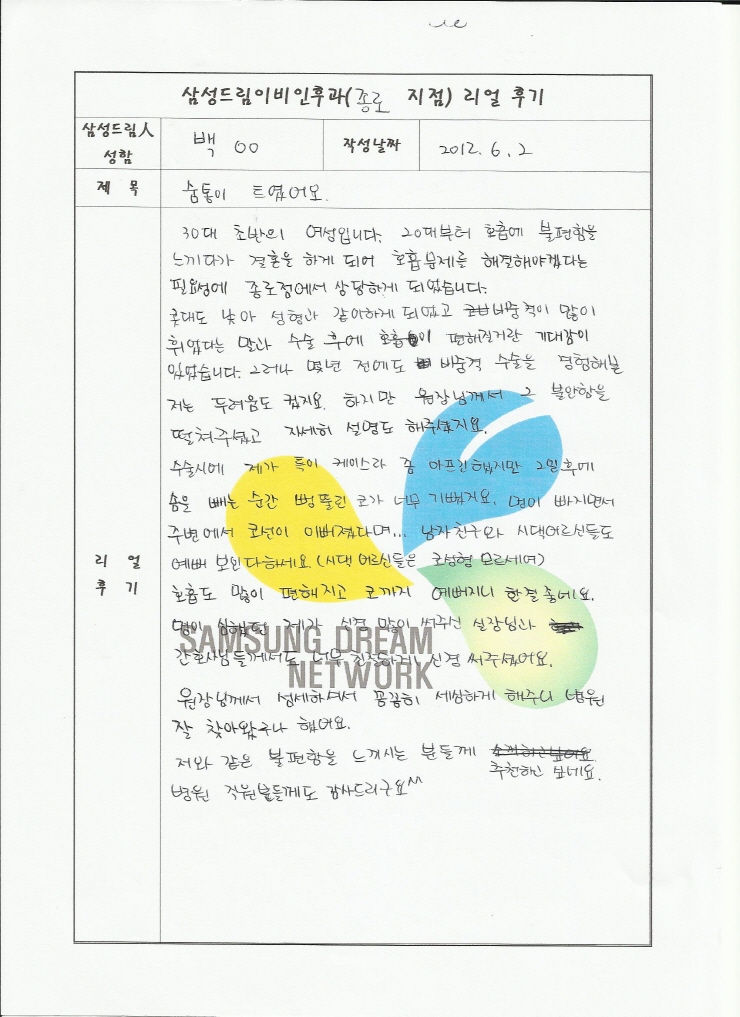 삼성드림이비인후과(종로 지점) 리얼 후기
삼성드림人 성함
백 OO
작성날짜
2012. 6. 2
제 목
숨통이 트였어요.
리 얼 후 기
30대 초반의 여성입니다. 20대부터 호흡에 불편함을
느끼다가 결혼을 하게 되어 호흡문제를 해결해야겠다는
필요성에 종로점에서 상담하게 되었습니다.
콧대도 낮아 성형과 같이하게 되었고 비중격이 많이
휘었다는 말과 수술 후에 호흡이 편해질거란 기대감이
있었습니다. 그러나 몇년 전에도 비중격 수술을 경험해본
저는 두려움도 컸지요. 하지만 원장님께서 그 불안함을
떨쳐주셨고 자세히 설명도 해주셨지요.
수술시에 제가 특이 케이스라 좀 아프긴했지만 2일후에
솜을 빼는 순간 뻥뚫린 코가 너무 기뻤지요. 멍이 빠지면서
주변에서 코선이 이뻐졌다며... 남자친구와 시댁어르신들도
예뻐 보인다하세요. (시댁 어르신들은 코성형 모르세여)
호흡도 많이 편해지고 코까지 예뻐지니 한결 좋네요.
멍이 심했던 제가 신경 많이 써주신 실장님과
간호사님들께서도 너무 친절하게 신경 써주셨어요.
원장님께서 섬세하셔서 꼼꼼히 세심하게 해주니 병원
잘 찾아왔구나 했어요.
저와 같은 불편함을 느끼시는 분들께
추천하고 보네요.
병원 직원분들께도 감사드리구요^^
SAMSUNG DREAM
NETWORK